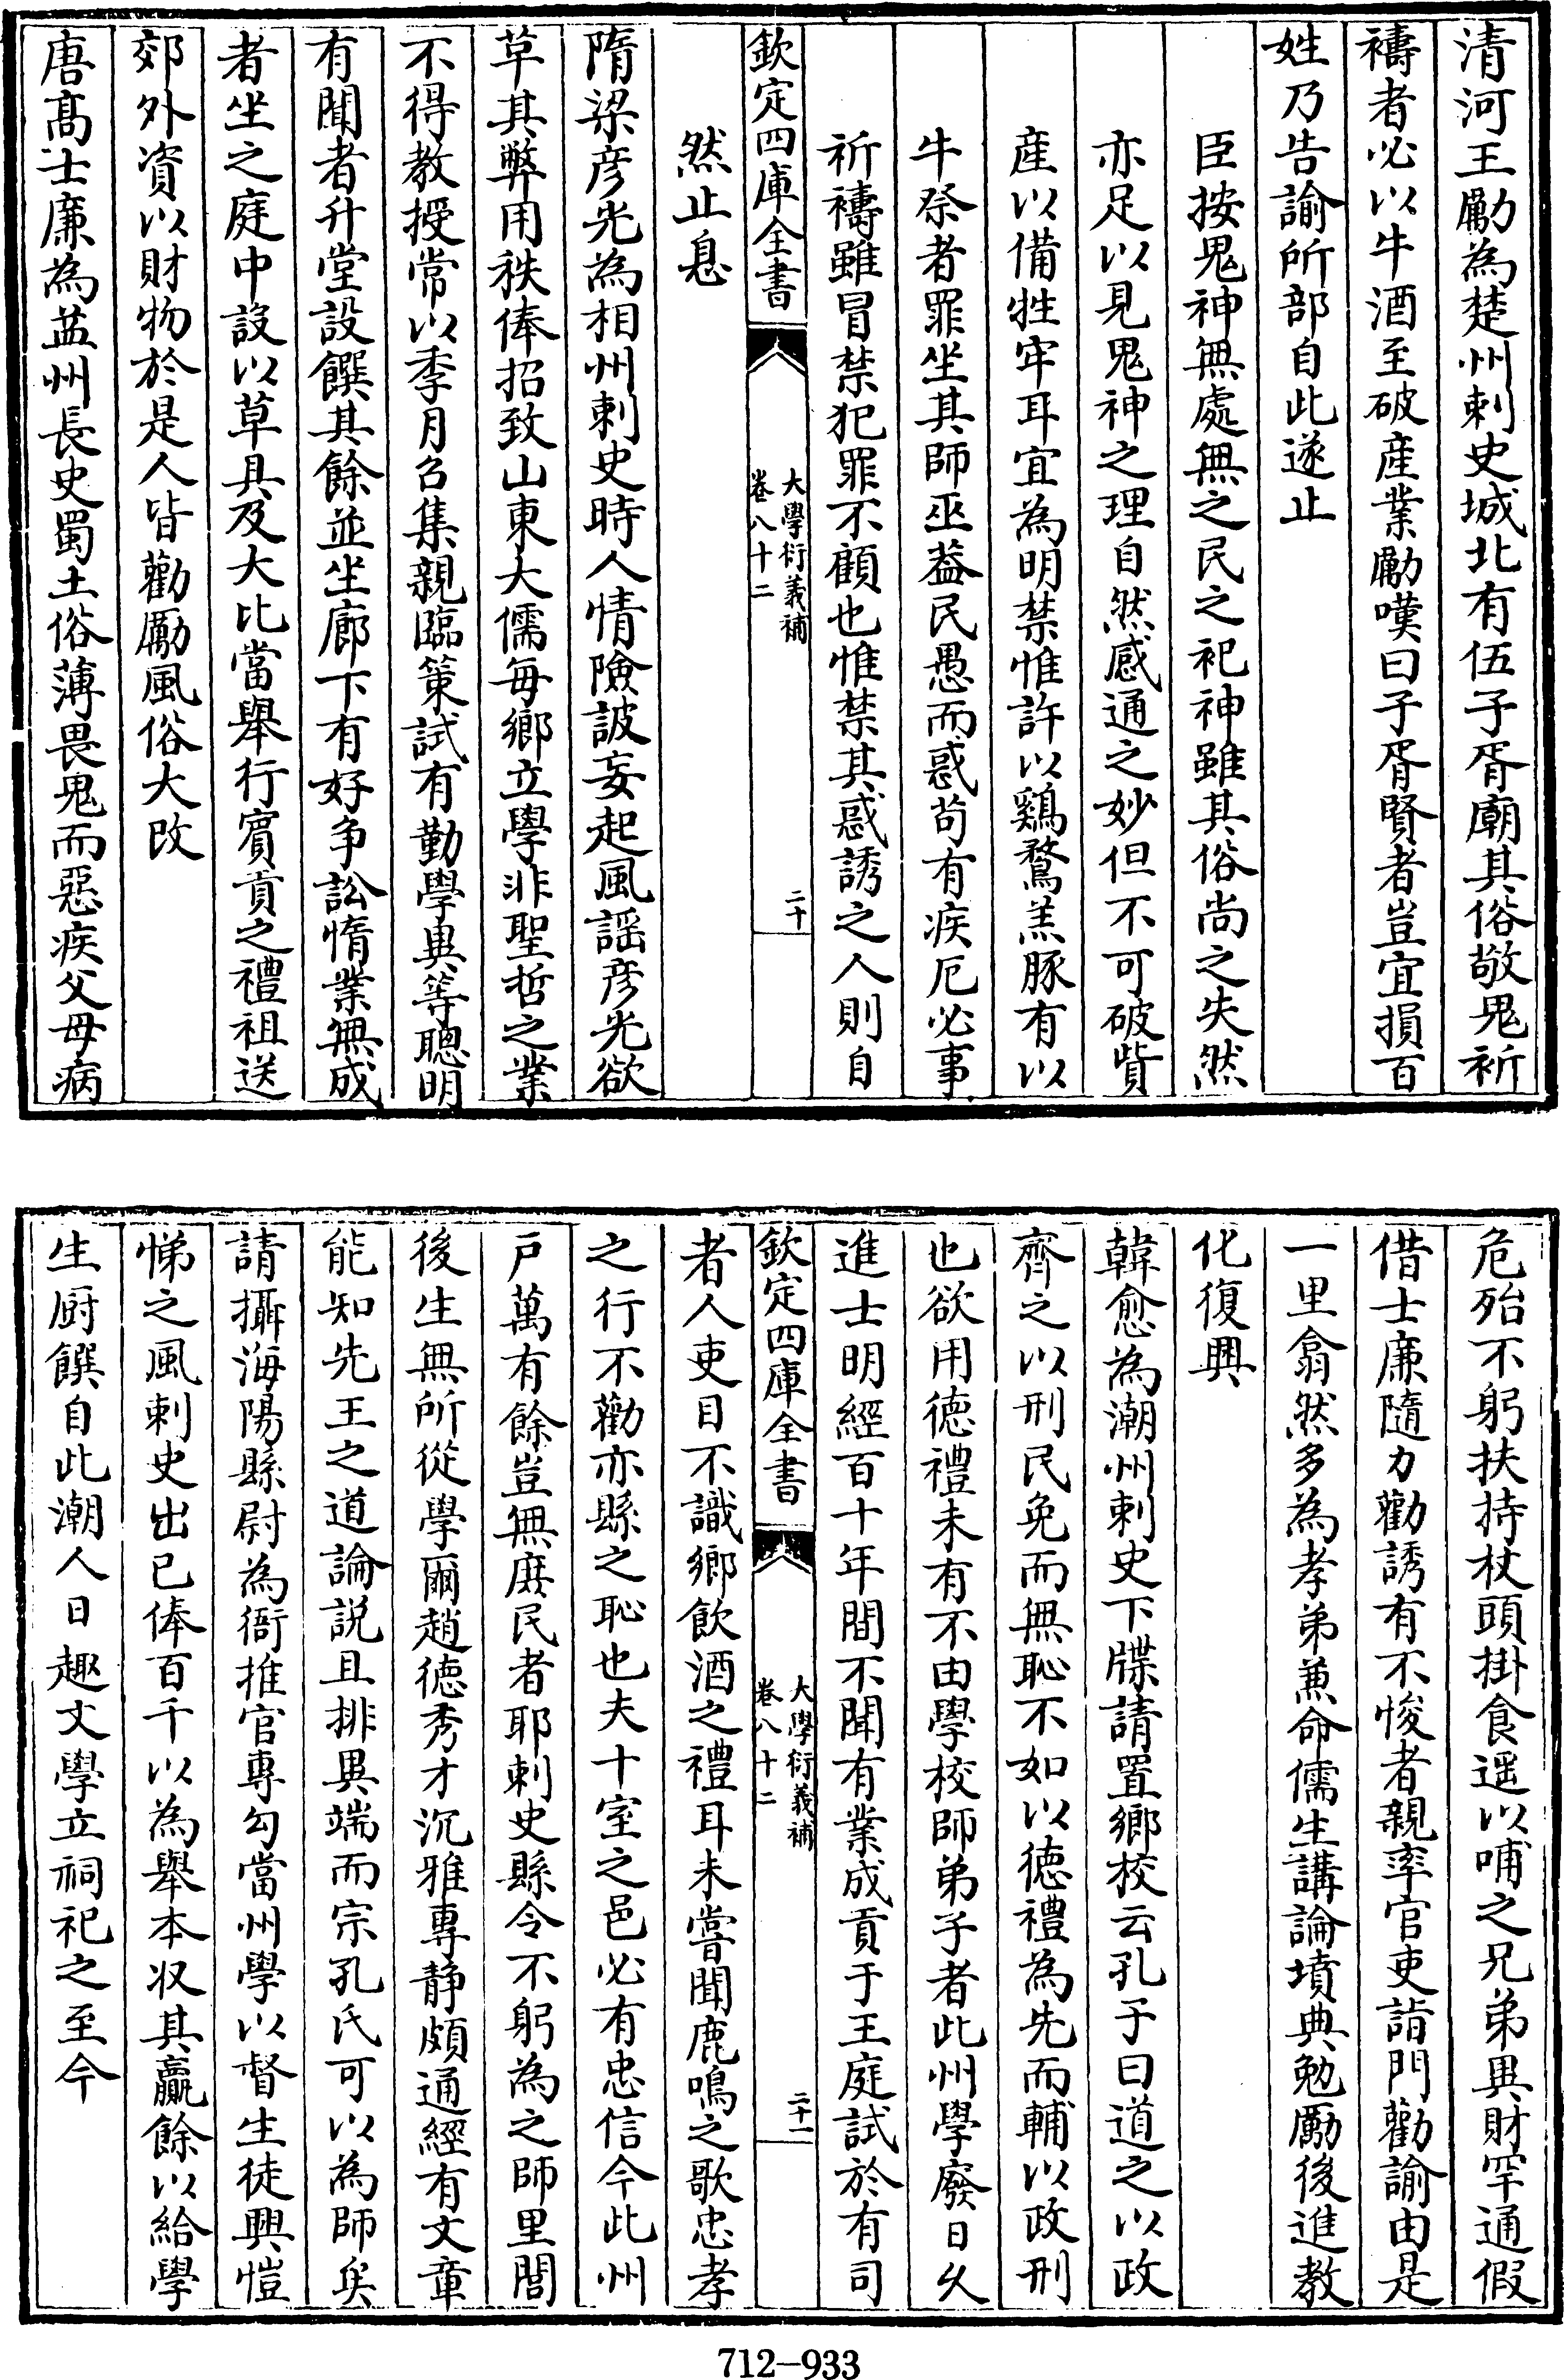 清河王勵為楚州刺史城北有伍子胥廟其俗敬鬼祈
禱者必以牛酒至破産業勵嘆曰子胥賢者豈宜損百
姓乃告諭所部自此遂止
臣按鬼神無處無之民之祀神雖其俗尚之失然
亦足以見鬼神之理自然感通之妙但不可破貲
産以備牲牢耳宜為明禁惟許以鷄鶩羔豚有以
牛祭者罪坐其師巫葢民愚而惑苟有疾厄必事
祈禱雖冒禁犯罪不顧也惟禁其惑誘之人則自
欽定四庫全書
大學衍義補
卷八十二
二十
然止息
隋梁彦光為相州刺史時人情險詖妄起風謡彦光欲
草其弊用秩俸招致山東大儒毎鄉立學非聖哲之業
不得教授常以季月召集親臨䇿試有勤學異等聰明
有聞者升堂設饌其餘並坐廊下有好争訟惰業無成
者坐之庭中設以草具及大比當舉行賔貢之禮祖送
郊外資以財物於是人皆勸勵風俗大改
唐髙士廉為益州長史蜀土俗薄畏鬼而惡疾父母病
危殆不躬扶持杖頭掛食遥以哺之兄弟異財罕通假
借士廉隨力勸誘有不悛者親率官吏詣門勸諭由是
一里翕然多為孝弟兼命儒生講論墳典勉勵後進教
化復興
韓愈為潮州刺史下牒請置鄉校云孔子曰道之以政
齊之以刑民免而無恥不如以徳禮為先而輔以政刑
也欲用徳禮未有不由學校師弟子者此州學廢日乆
進士明經百十年間不聞有業成貢于王庭試於有司
欽定四庫全書
大學衍義補
卷八十二
二十一
者人吏目不識鄉飲酒之禮耳未嘗聞鹿鳴之歌忠孝
之行不勸亦縣之恥也夫十室之邑必有忠信今此州
戸萬有餘豈無庶民者耶刺史縣令不躬為之師里閭
後生無所從學爾趙徳秀才沉雅專静頗通經有文章
能知先王之道論説且排異端而宗孔氏可以為師矣
請攝海陽縣尉為衙推官專勾當州學以督生徒興愷
悌之風刺史出已俸百千以為舉本收其贏餘以給學
生厨饌自此潮人日趣文學立祠祀之至今
712-933